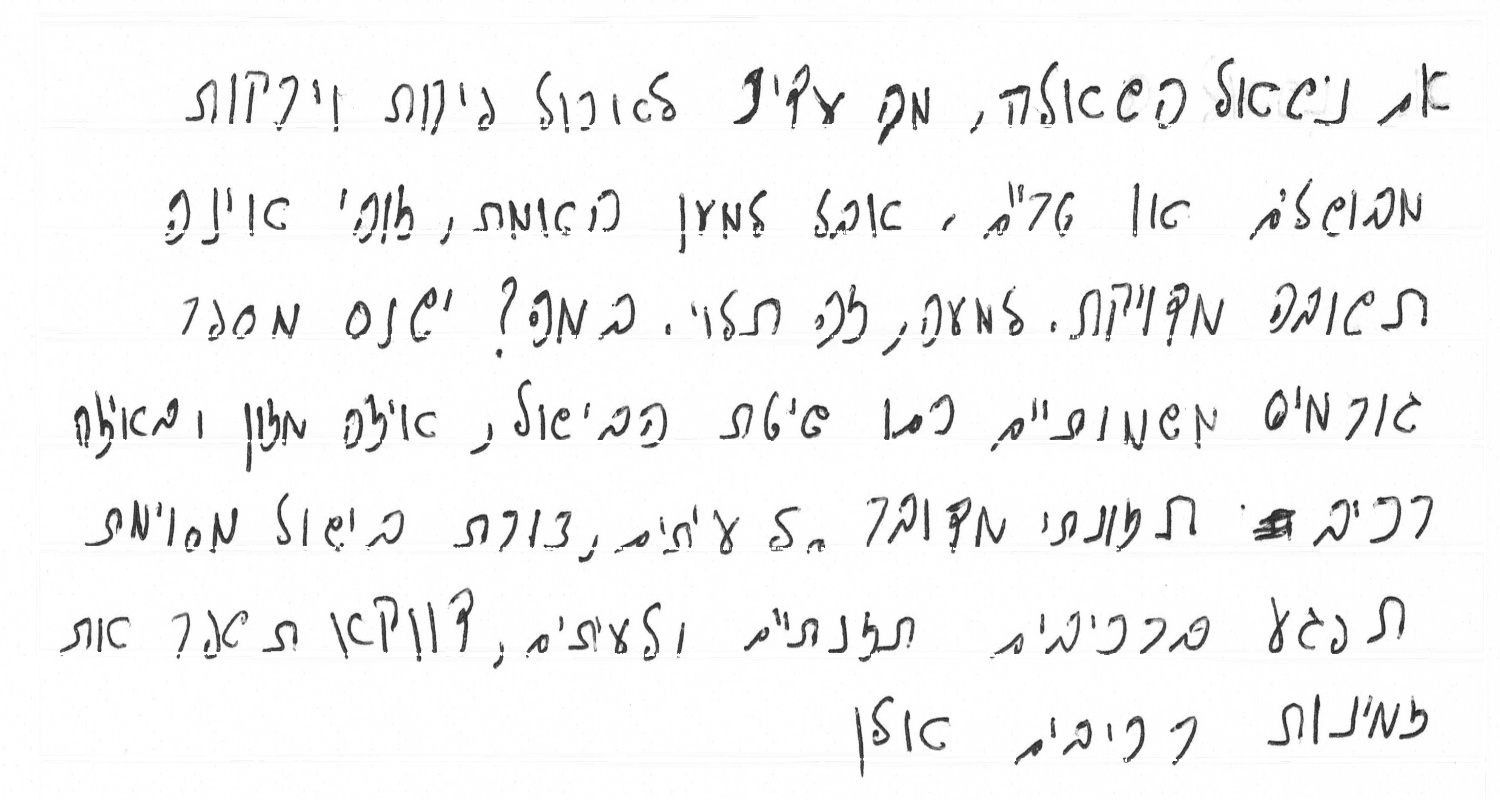 אם נישאול השאולה, מה עדיף לאוכול פירות וירקות
מבושלים או טריים, אבל למען האומת, זוהי אוינה
תשובה מדויקת. למעה, זה תלוי. במה? ישנס מספר
גורמים משמותיים כמו שיטת הבישול, איזה מזון ובאיזה
רכיב תזונתי מדובר. לעיתים, צורת בישול מסוימת
תפגע ברכיבים תזנתיים ולעיתים, דווקא תשפר אות
זמינות רכיבים אולן